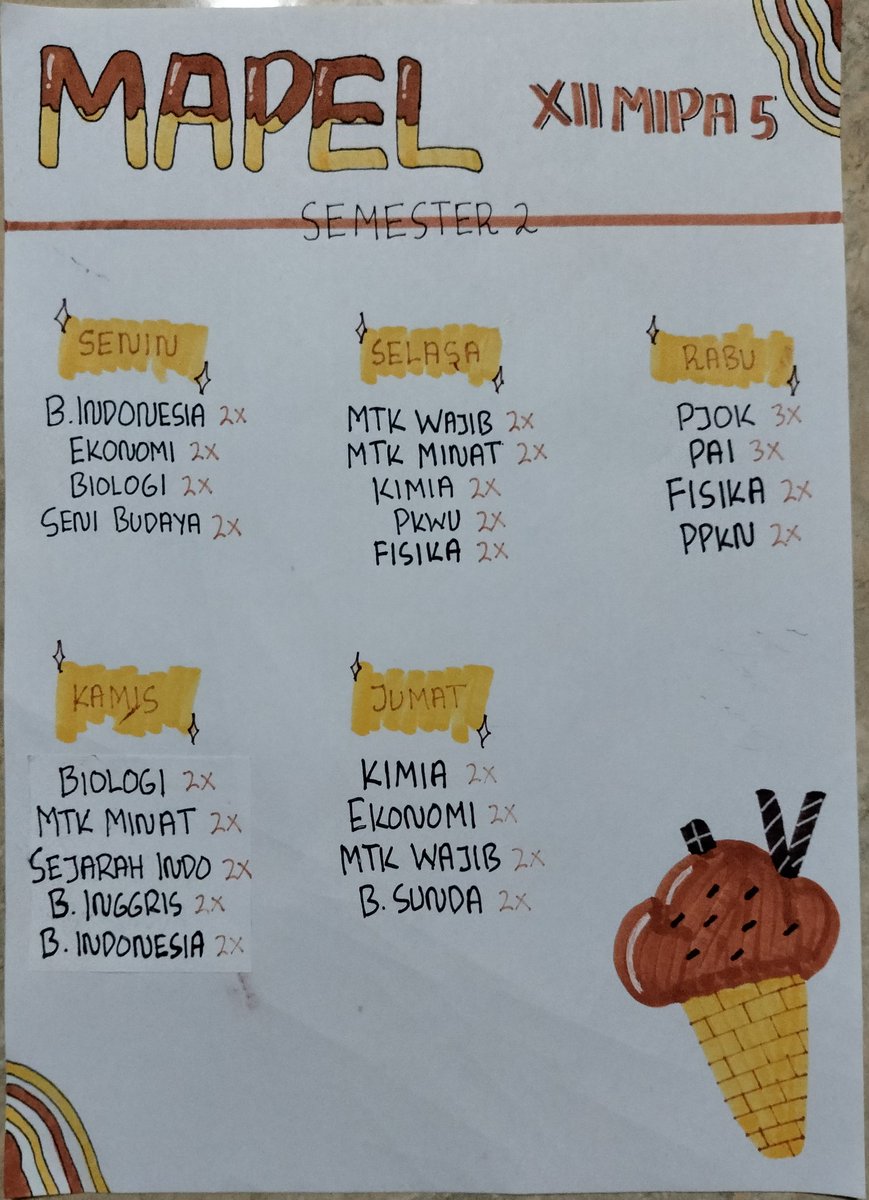 MAPEL
XII MIPA 5
SEMESTER 2
SENIN
B.INDONESIA 2X
EKONOMI 2X
BIOLOGI 2X
SENI BUDAYA 2X
SELASA
MTK WAJIB 2X
MTK MINAT 2X
KIMIA 2X
PKWU 2X
FISIKA 2X
RABU
PJOK 3X
PAI 3X
FISIKA 2X
PPKN 2X
KAMIS
BIOLOGI 2X
MTK MINAT 2X
SEJARAH INDO 2X
B. INGGRIS 2X
B. INDONESIA 2X
JUMAT
KIMIA 2X
EKONOMI 2X
MTK WAJIB 2X
B. SUNDA 2X